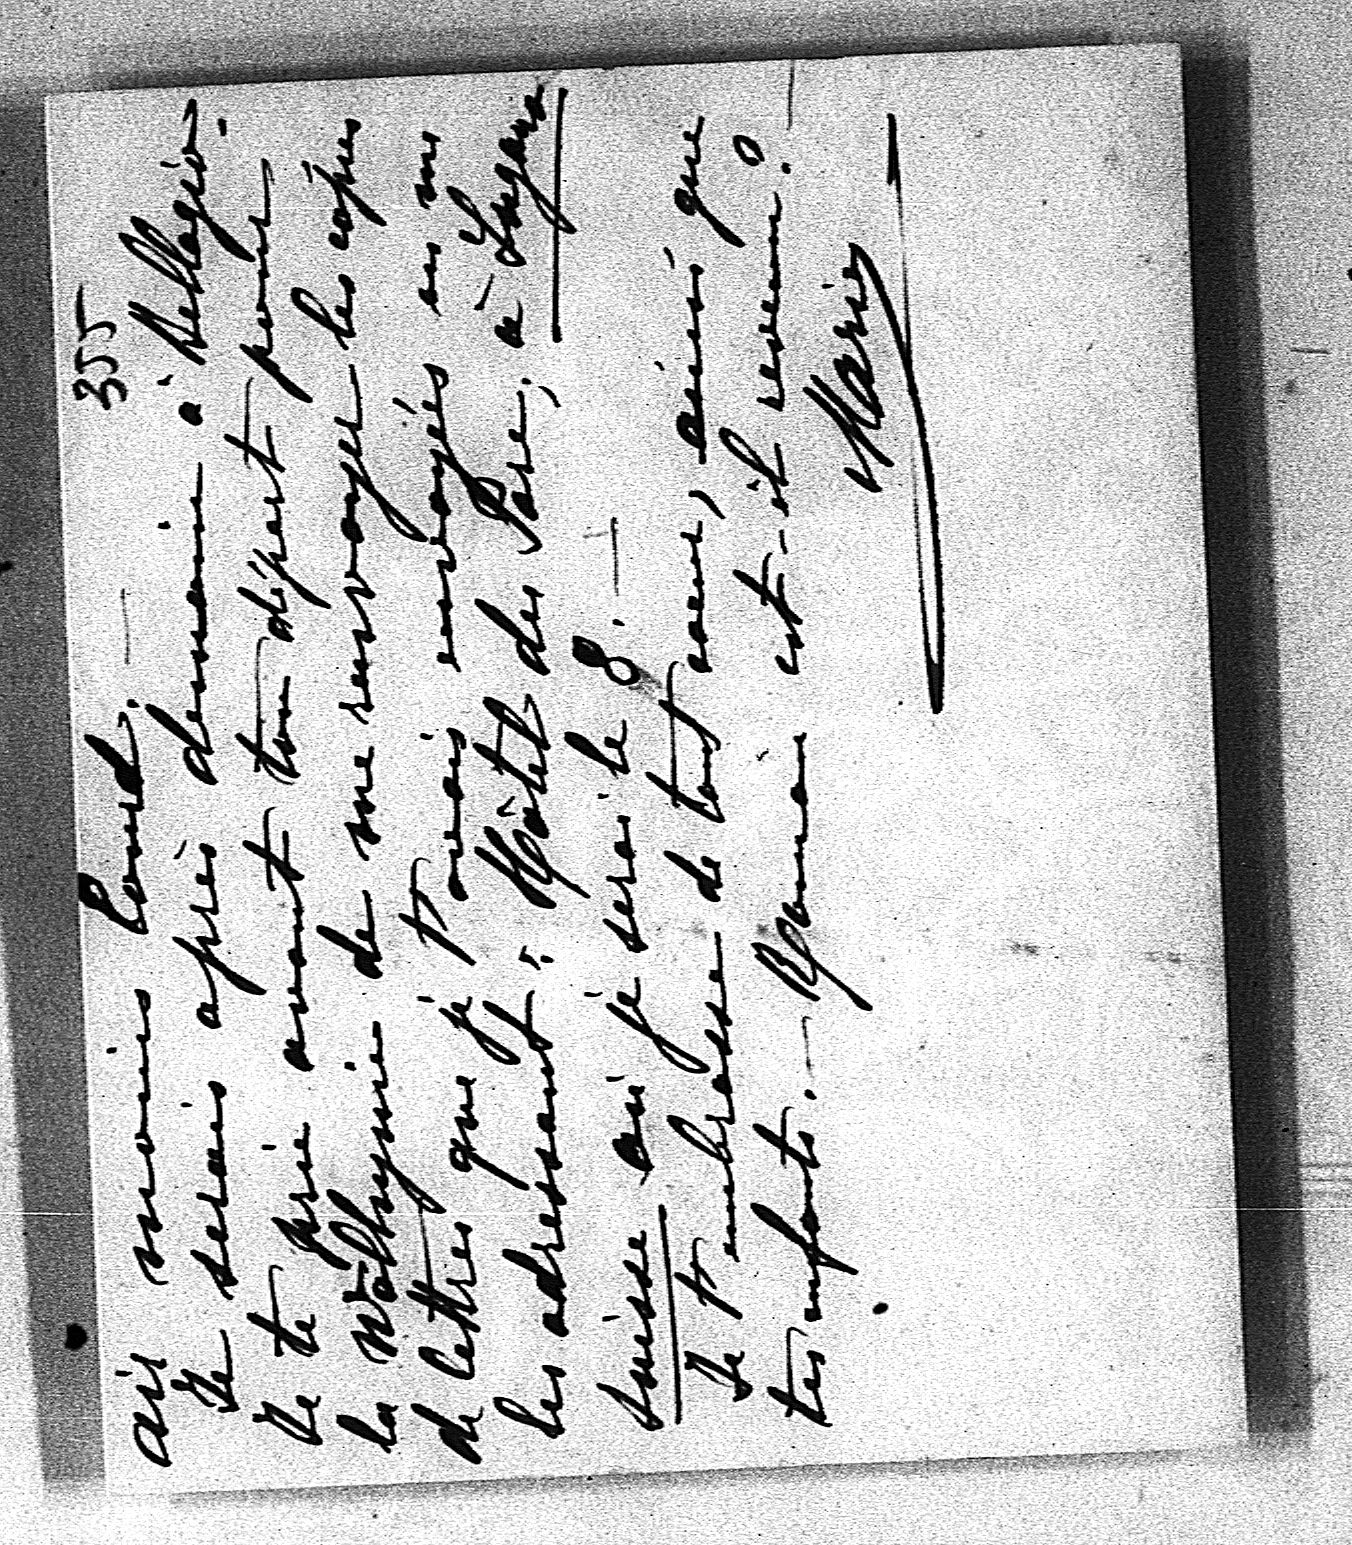 355
air moins lourd. —
Je serais après demain à Bellagio.
Je te prie avant ton départ pour
la Wolhynie de me renvoyer les copies
de lettres que je t'avais envoyées en me
les adressant: Hôtel du Parc, à Lugano
Suisse où je serai le 8. —
Je t'embrasse de tout coeur, ainsi que
tes enfants. — Roman est-il revenu?
Marie